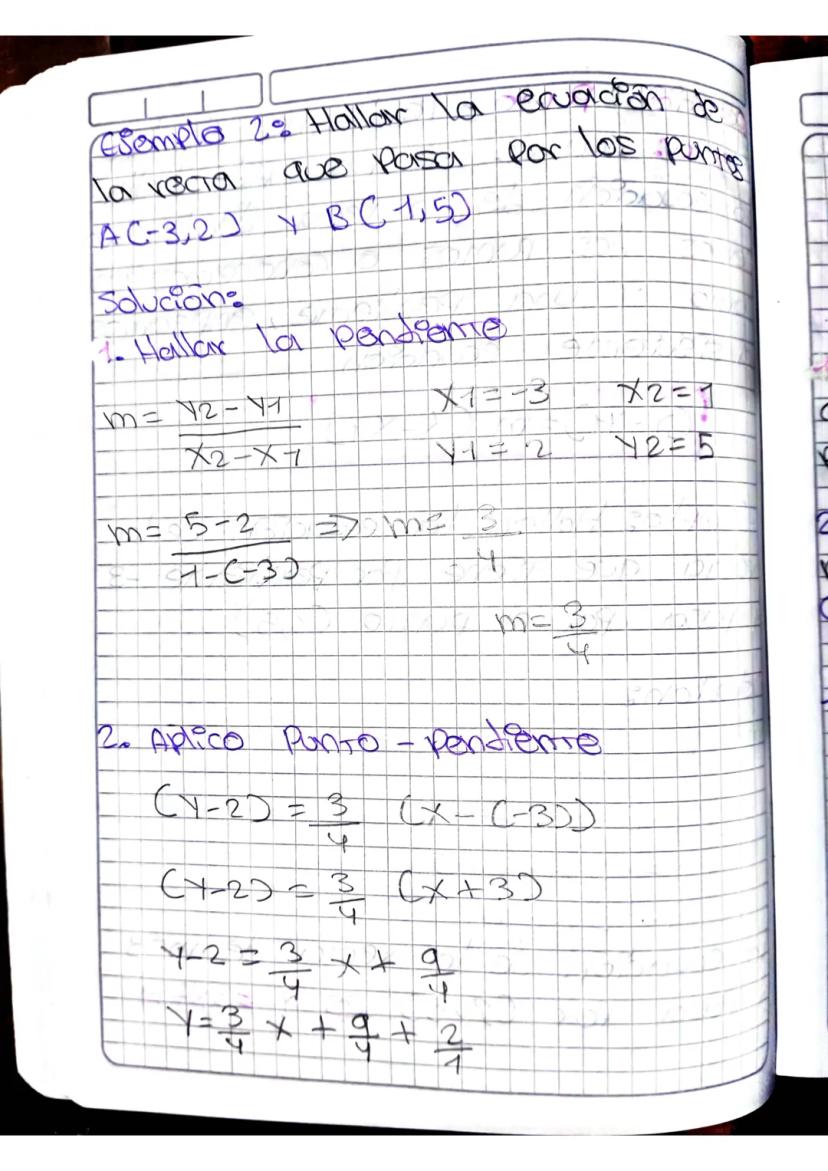 Ejemplo 2: Hallar la ecuación de
la recta que pasa por los puntos
A(-3,2) y B(1,5)
Solución:
1. Hallar la pendiente
m = y2 - y1 / x2 - x1    x1 = -3    x2 = 1
y1 = 2    y2 = 5
m = 5 - 2 / 1 - (-3) => m = 3/4
m = 3/4
2. Aplico Punto - pendiente
(y - 2) = 3/4 (x - (-3))
(y - 2) = 3/4 (x + 3)
y - 2 = 3/4 x + 9/4
y = 3/4 x + 9/4 + 2/1